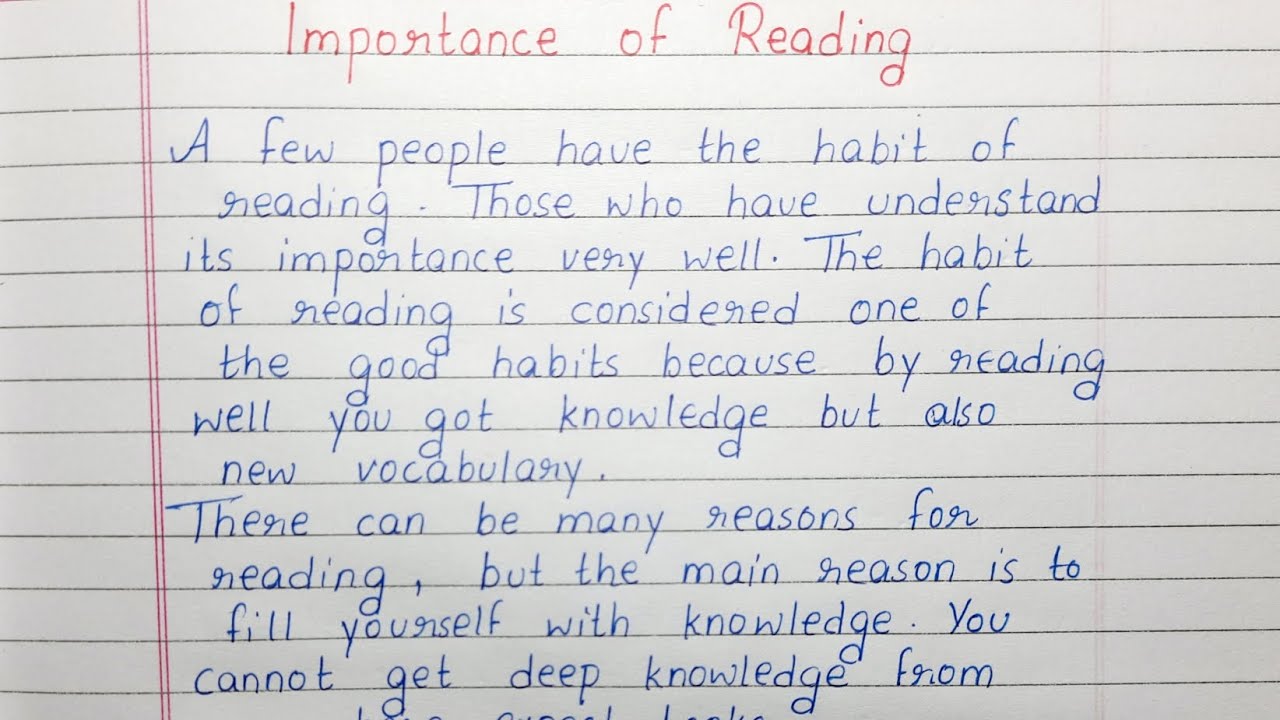 Importance of Reading
A few people have the habit of
reading. Those who have understand
its importance very well. The habit
of reading is considered one of
the good habits because by reading
well you got knowledge but also
new vocabulary.
There can be many reasons for
reading, but the main reason is to
fill yourself with knowledge. You
cannot get deep knowledge from